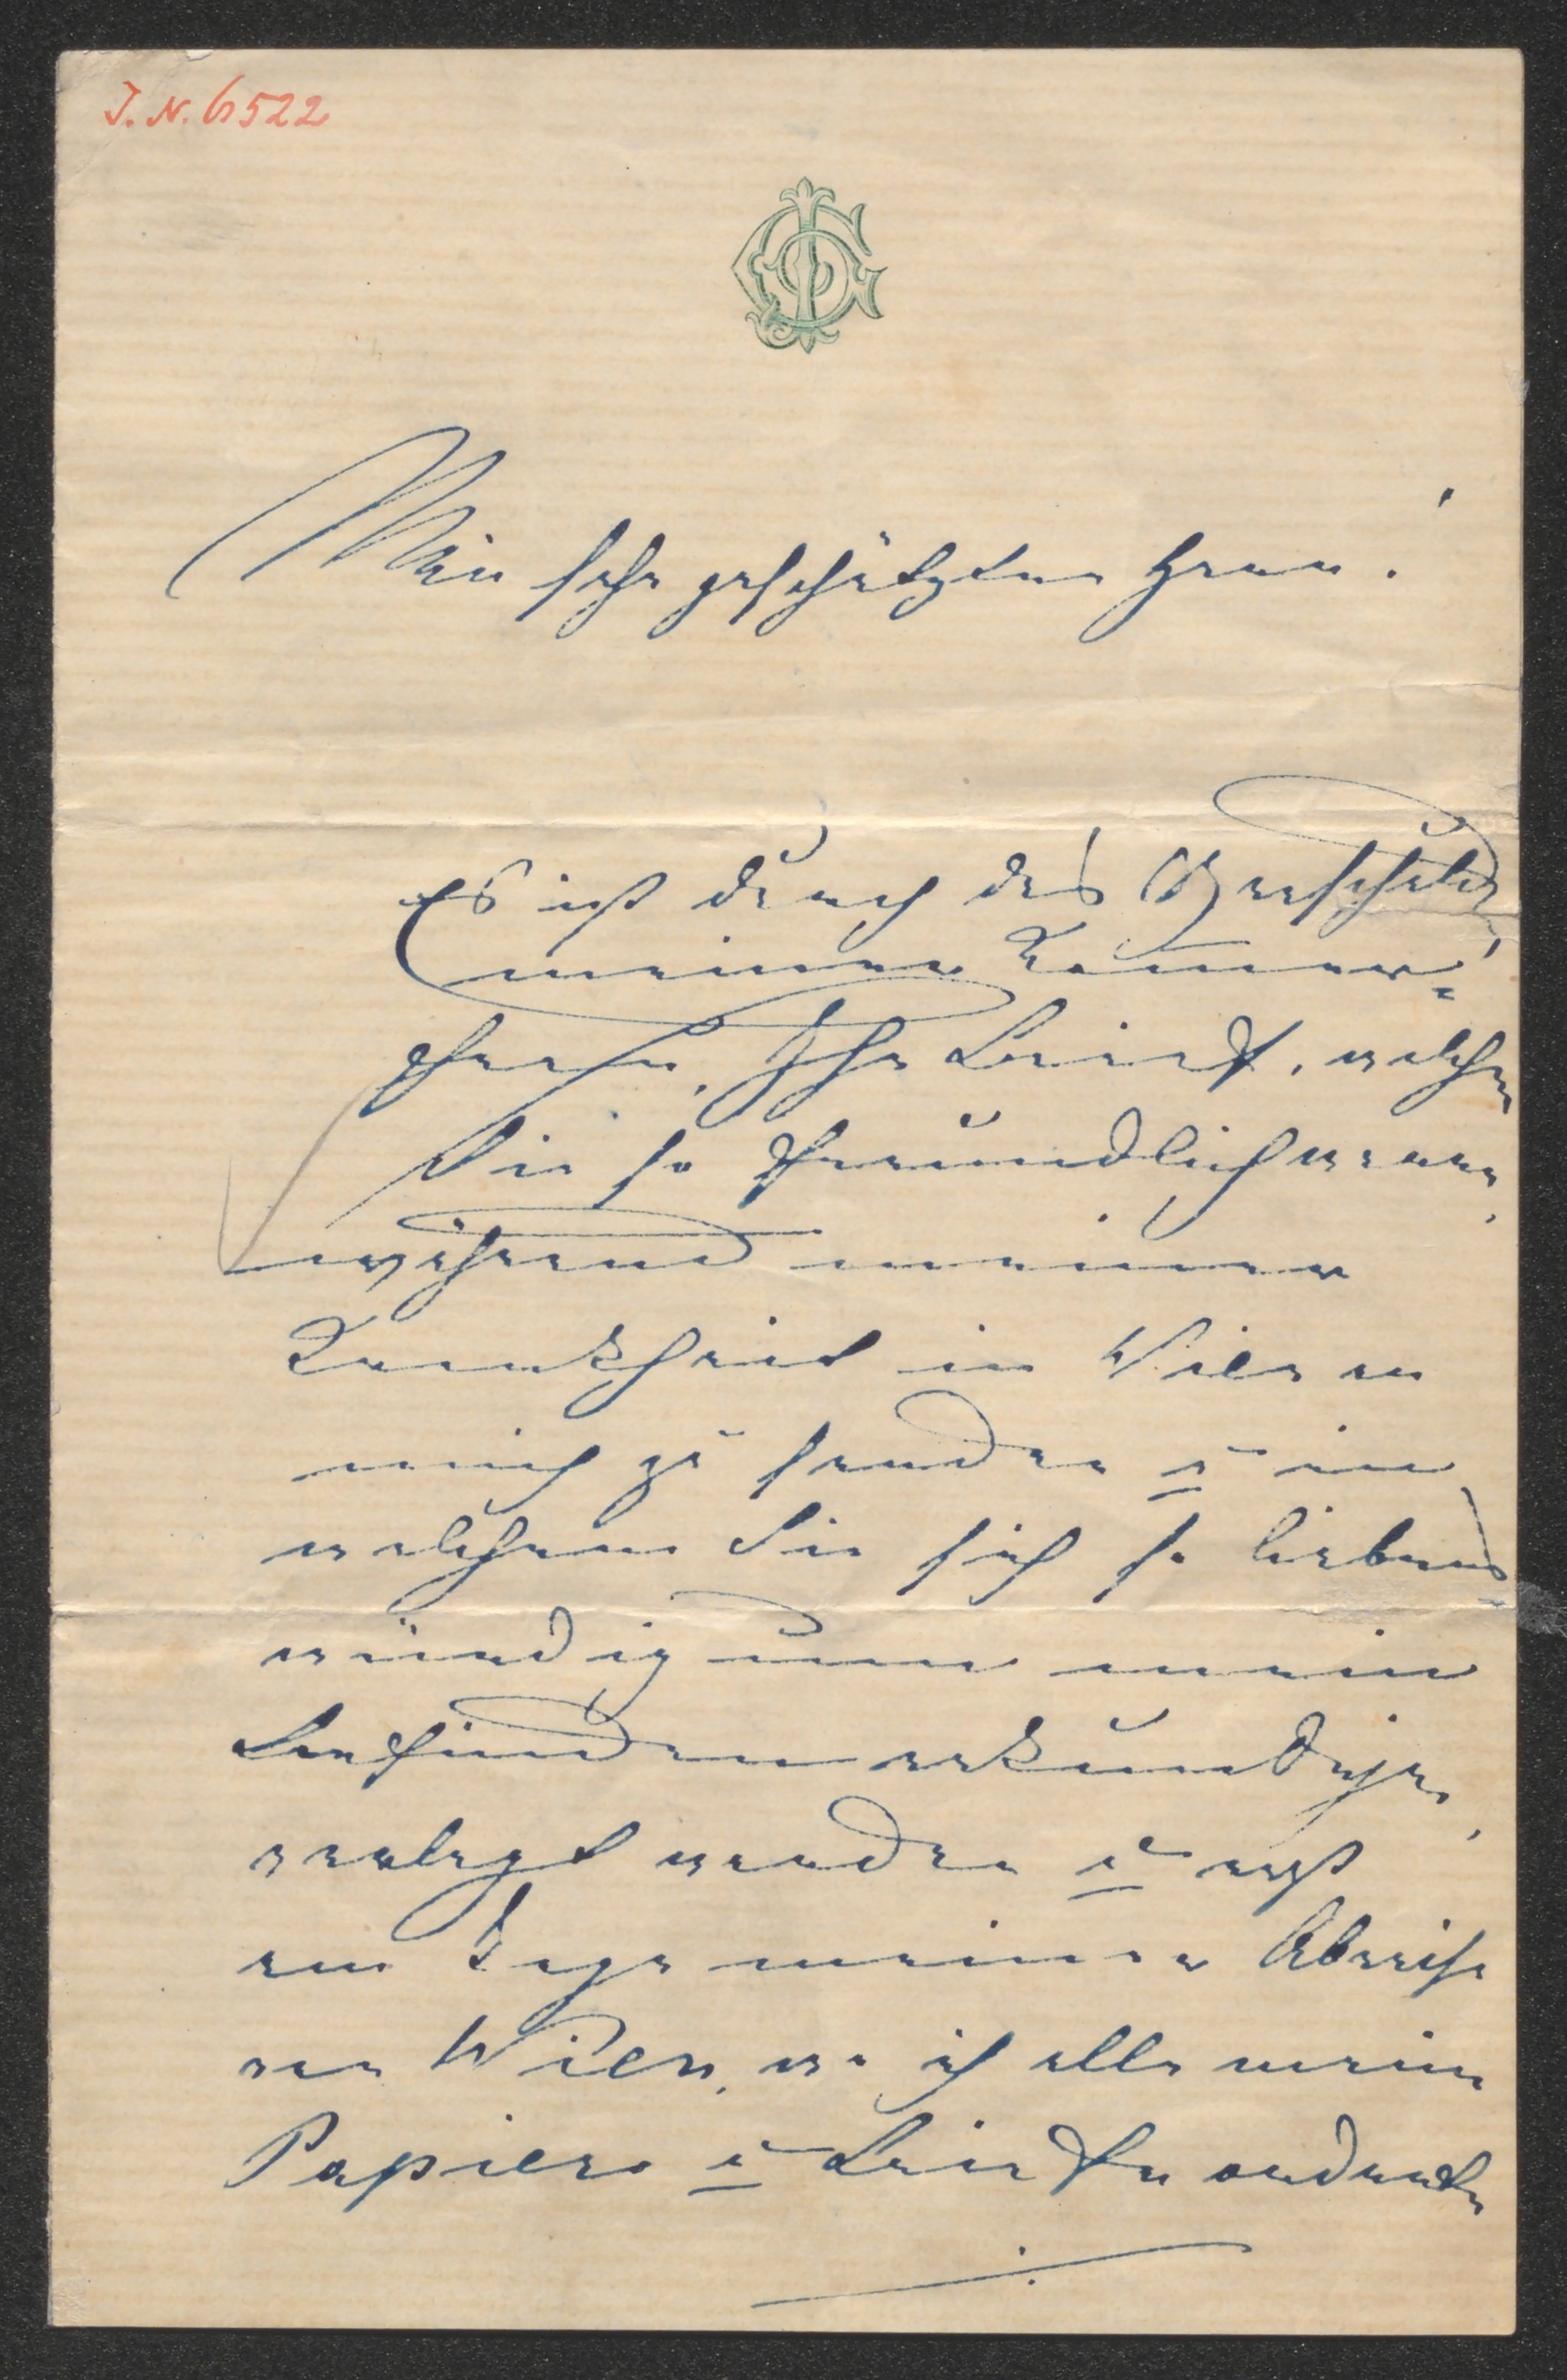 J. N. 6522
Mein sehr geschätzter Herr!
Es ist durch das Verschulden
meiner Kammer-
frau, Ihr Brief, welchen
Sie so freundlich waren,
während meiner
Krankheit in Wien an
mich zu senden u in
welchem Sie sich so liebens-
würdig um mein
Befinden erkundigen,
verlegt worden u erst
am Tage meiner Abreise
von Wien, wo ich alle meine
Papiere u Briefe ordnete